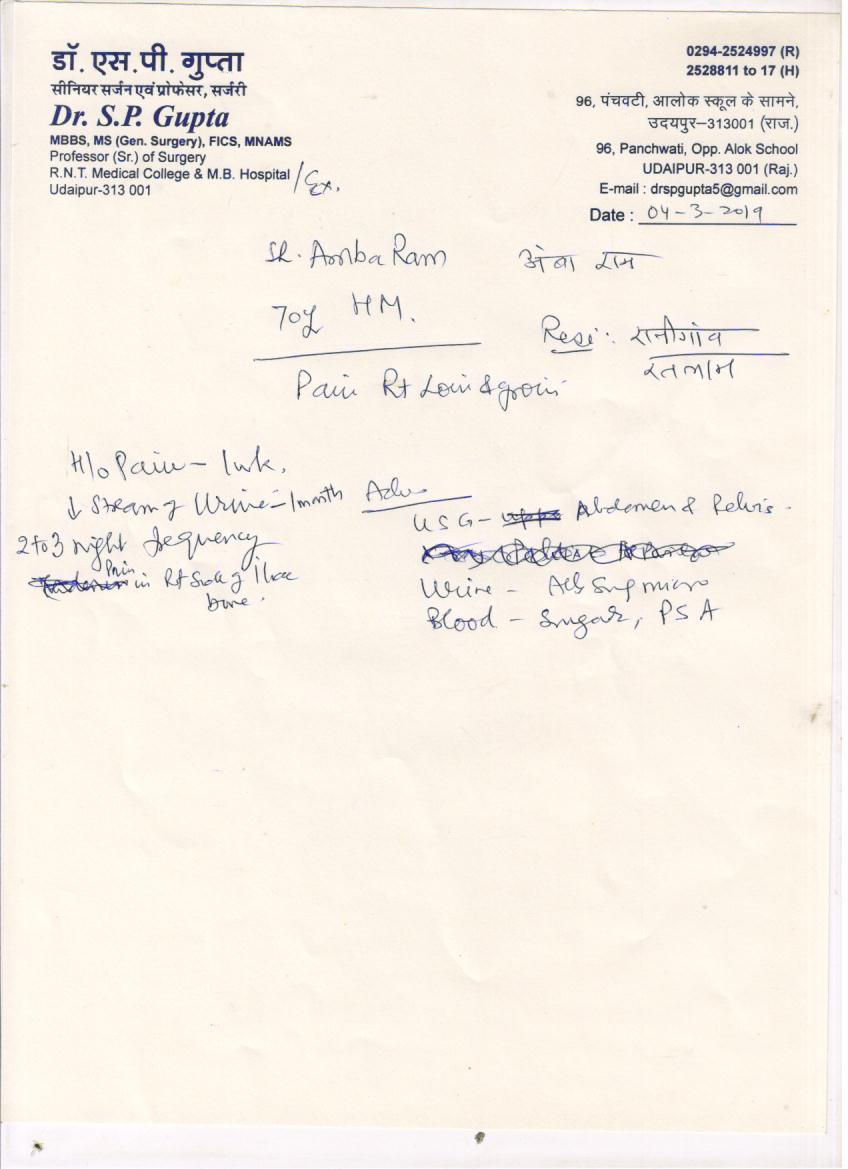 डॉ. एस.पी. गुप्ता
सीनियर सर्जन एवं प्रोफेसर, सर्जरी
Dr. S.P. Gupta
MBBS, MS (Gen. Surgery), FICS, MNAMS
Professor (Sr.) of Surgery
R.N.T. Medical College & M.B. Hospital / Ex.
Udaipur-313 001
0294-2524997 (R)
2528811 to 17 (H)
96, पंचवटी, आलोक स्कूल के सामने,
उदयपुर–313001 (राज.)
96, Panchwati, Opp. Alok School
UDAIPUR-313 001 (Raj.)
E-mail : drspgupta5@gmail.com
Date : 04-3-2019
Sh. Amba Ram अंबा राम
70y HM.
Resi: रानीगांव
रतलाम
Pain Rt Loin & groin
H/o Pain - 1wk.
↓ Stream of Urine - 1month
2 to 3 night frequency
Pain in Rt side of iliac
bone.
Adv
USG - Abdomen & Pelvis.
Urine - Alb Sug micro
Blood - Sugar, PSA